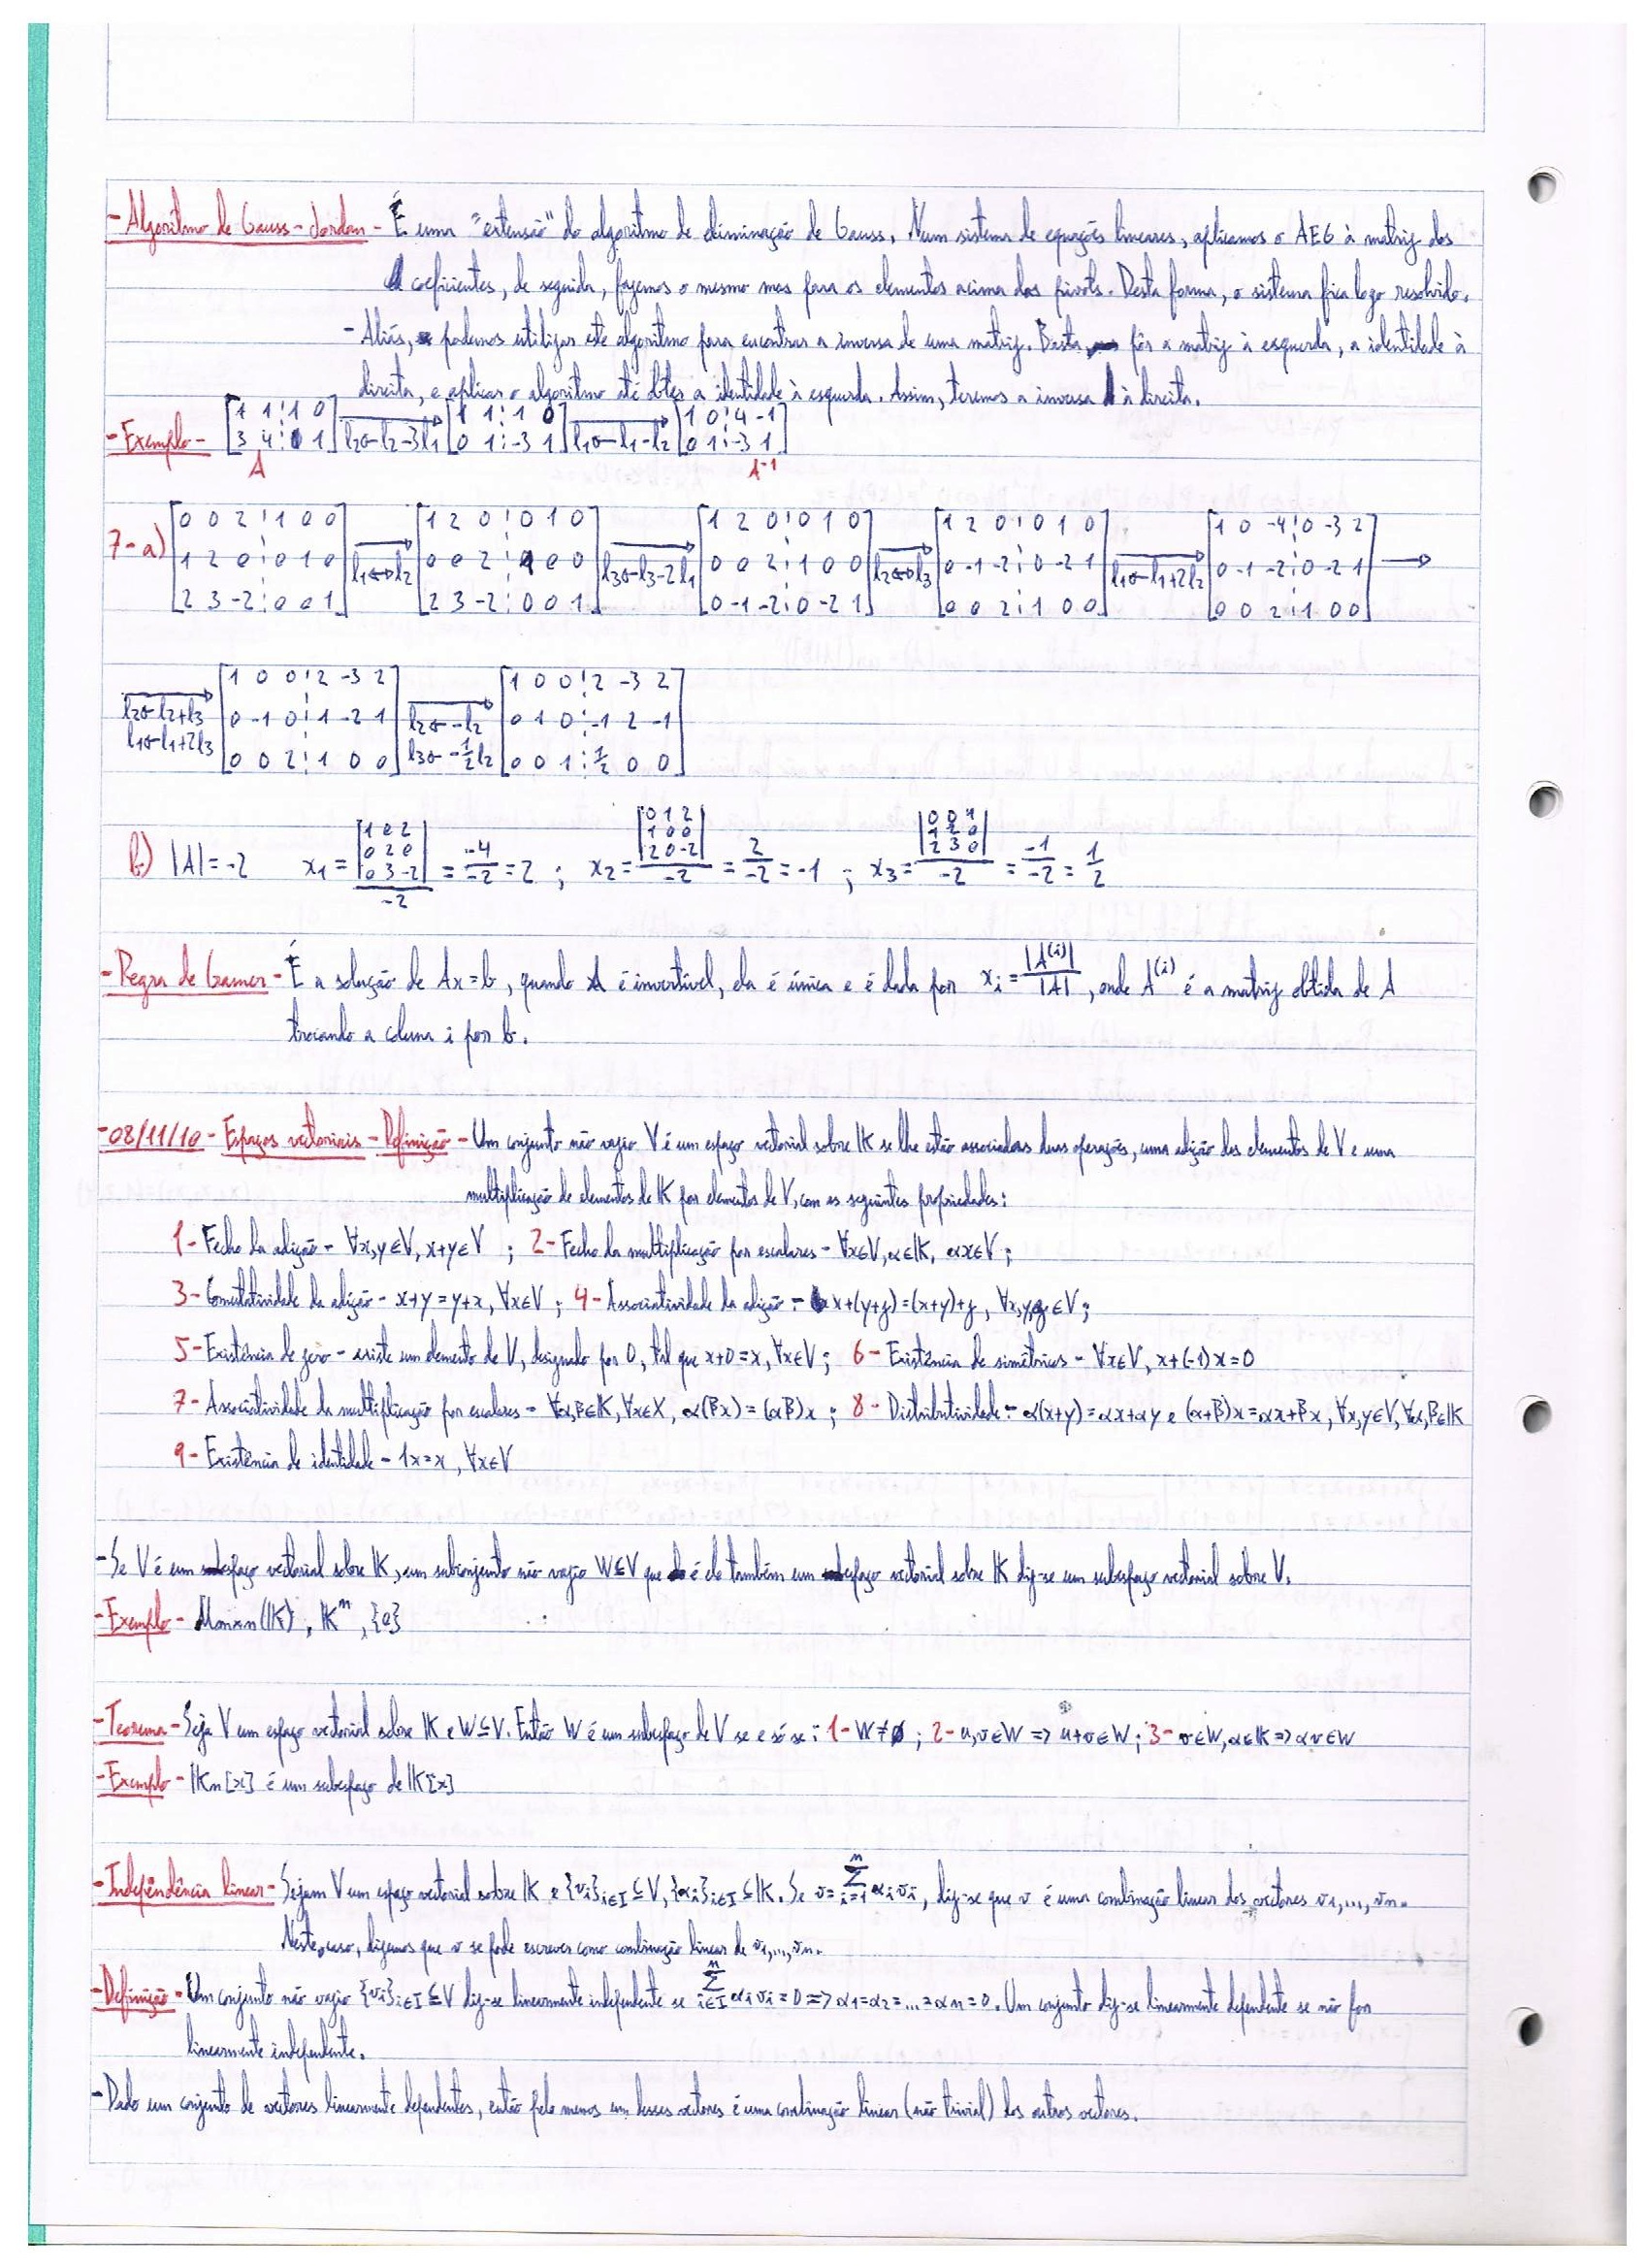 - Algoritmo de Gauss-Jordan - É uma "extensão" do algoritmo de eliminação de Gauss. Num sistema de equações lineares, aplicamos o AEG à matriz dos
coeficientes, de seguida, fazemos o mesmo mas para os elementos acima dos pivots. Desta forma, o sistema fica logo resolvido.
- Aliás, podemos utilizar este algoritmo para encontrar a inversa de uma matriz. Basta pôr a matriz à esquerda, a identidade à
direita, e aplicar o algoritmo até obter a identidade à esquerda. Assim, teremos a inversa à direita.
- Exemplo - [1 1 ¦ 1 0; 3 4 ¦ 0 1] → l2←l2-3l1 [1 1 ¦ 1 0; 0 1 ¦ -3 1] → l1←l1-l2 [1 0 ¦ 4 -1; 0 1 ¦ -3 1]
A A⁻¹
7-a) [0 0 2 ¦ 1 0 0; 1 2 0 ¦ 0 1 0; 2 3 -2 ¦ 0 0 1] → l1↔l2 [1 2 0 ¦ 0 1 0; 0 0 2 ¦ 1 0 0; 2 3 -2 ¦ 0 0 1] → l3←l3-2l1 [1 2 0 ¦ 0 1 0; 0 0 2 ¦ 1 0 0; 0 -1 -2 ¦ 0 -2 1] → l2↔l3 [1 2 0 ¦ 0 1 0; 0 -1 -2 ¦ 0 -2 1; 0 0 2 ¦ 1 0 0] → l1←l1+2l2 [1 0 -4 ¦ 0 -3 2; 0 -1 -2 ¦ 0 -2 1; 0 0 2 ¦ 1 0 0] →
→ l2←l2+l3 l1←l1+2l3 [1 0 0 ¦ 2 -3 2; 0 -1 0 ¦ 1 -2 1; 0 0 2 ¦ 1 0 0] → l2←-l2 l3←-1/2 l2 [1 0 0 ¦ 2 -3 2; 0 1 0 ¦ -1 2 -1; 0 0 1 ¦ 1/2 0 0]
b) |A|=-2 x1 = |1 0 2; 0 2 0; 0 3 -2| / -2 = -4/-2 = 2 ; x2 = |0 1 2; 1 0 0; 2 0 -2| / -2 = 2/-2 = -1 ; x3 = |0 0 1; 1 2 0; 2 3 0| / -2 = -1/-2 = 1/2
- Regra de Cramer - É a solução de Ax=b, quando A é invertível, ela é única e é dada por xi = |A⁽ⁱ⁾|/|A|, onde A⁽ⁱ⁾ é a matriz obtida de A
trocando a coluna i por b.
- 08/11/10 - Espaços vectoriais - Definição - Um conjunto não vazio V é um espaço vectorial sobre 𝕂 se lhe estão associadas duas operações, uma adição dos elementos de V e uma
multiplicação de elementos de 𝕂 por elementos de V, com as seguintes propriedades:
1 - Fecho da adição - ∀x,y∈V, x+y∈V ; 2 - Fecho da multiplicação por escalares - ∀x∈V, α∈𝕂, αx∈V ;
3 - Comutatividade da adição - x+y=y+x, ∀x∈V ; 4 - Associatividade da adição - x+(y+z)=(x+y)+z, ∀x,y,z∈V ;
5 - Existência de zero - existe um elemento de V, designado por 0, tal que x+0=x, ∀x∈V ; 6 - Existência de simétricos - ∀x∈V, x+(-1)x=0
7 - Associatividade da multiplicação por escalares - ∀α,β∈𝕂, ∀x∈X, α(βx)=(αβ)x ; 8 - Distributividade - α(x+y)=αx+αy e (α+β)x=αx+βx, ∀x,y∈V, ∀α,β∈𝕂
9 - Existência de identidade - 1x=x, ∀x∈V
- Se V é um espaço vectorial sobre 𝕂, um subconjunto não vazio W⊆V que é ele também um espaço vectorial sobre 𝕂 diz-se um subespaço vectorial sobre V.
- Exemplo - Mm×n(𝕂), 𝕂ⁿ, {0}
- Teorema - Seja V um espaço vectorial sobre 𝕂 e W⊆V. Então W é um subespaço de V se e só se: 1 - W≠∅ ; 2 - u,v∈W => u+v∈W ; 3 - v∈W, α∈𝕂 => αv∈W
- Exemplo - 𝕂n[x] é um subespaço de 𝕂[x]
- Independência linear - Sejam V um espaço vectorial sobre 𝕂 e {vi}i∈I ⊆V, {αi}i∈I ⊆𝕂. Se v=∑ⁿi=1 αivi, diz-se que v é uma combinação linear dos vectores v1,...,vn.
Neste caso, dizemos que v se pode escrever como combinação linear de v1,...,vn.
- Definição - Um conjunto não vazio {vi}i∈I ⊆V diz-se linearmente independente se ∑ⁿi∈I αivi=0 => α1=α2=...=αn=0. Um conjunto diz-se linearmente dependente se não for
linearmente independente.
- Dado um conjunto de vectores linearmente dependentes, então pelo menos um desses vectores é uma combinação linear (não trivial) dos outros vectores.